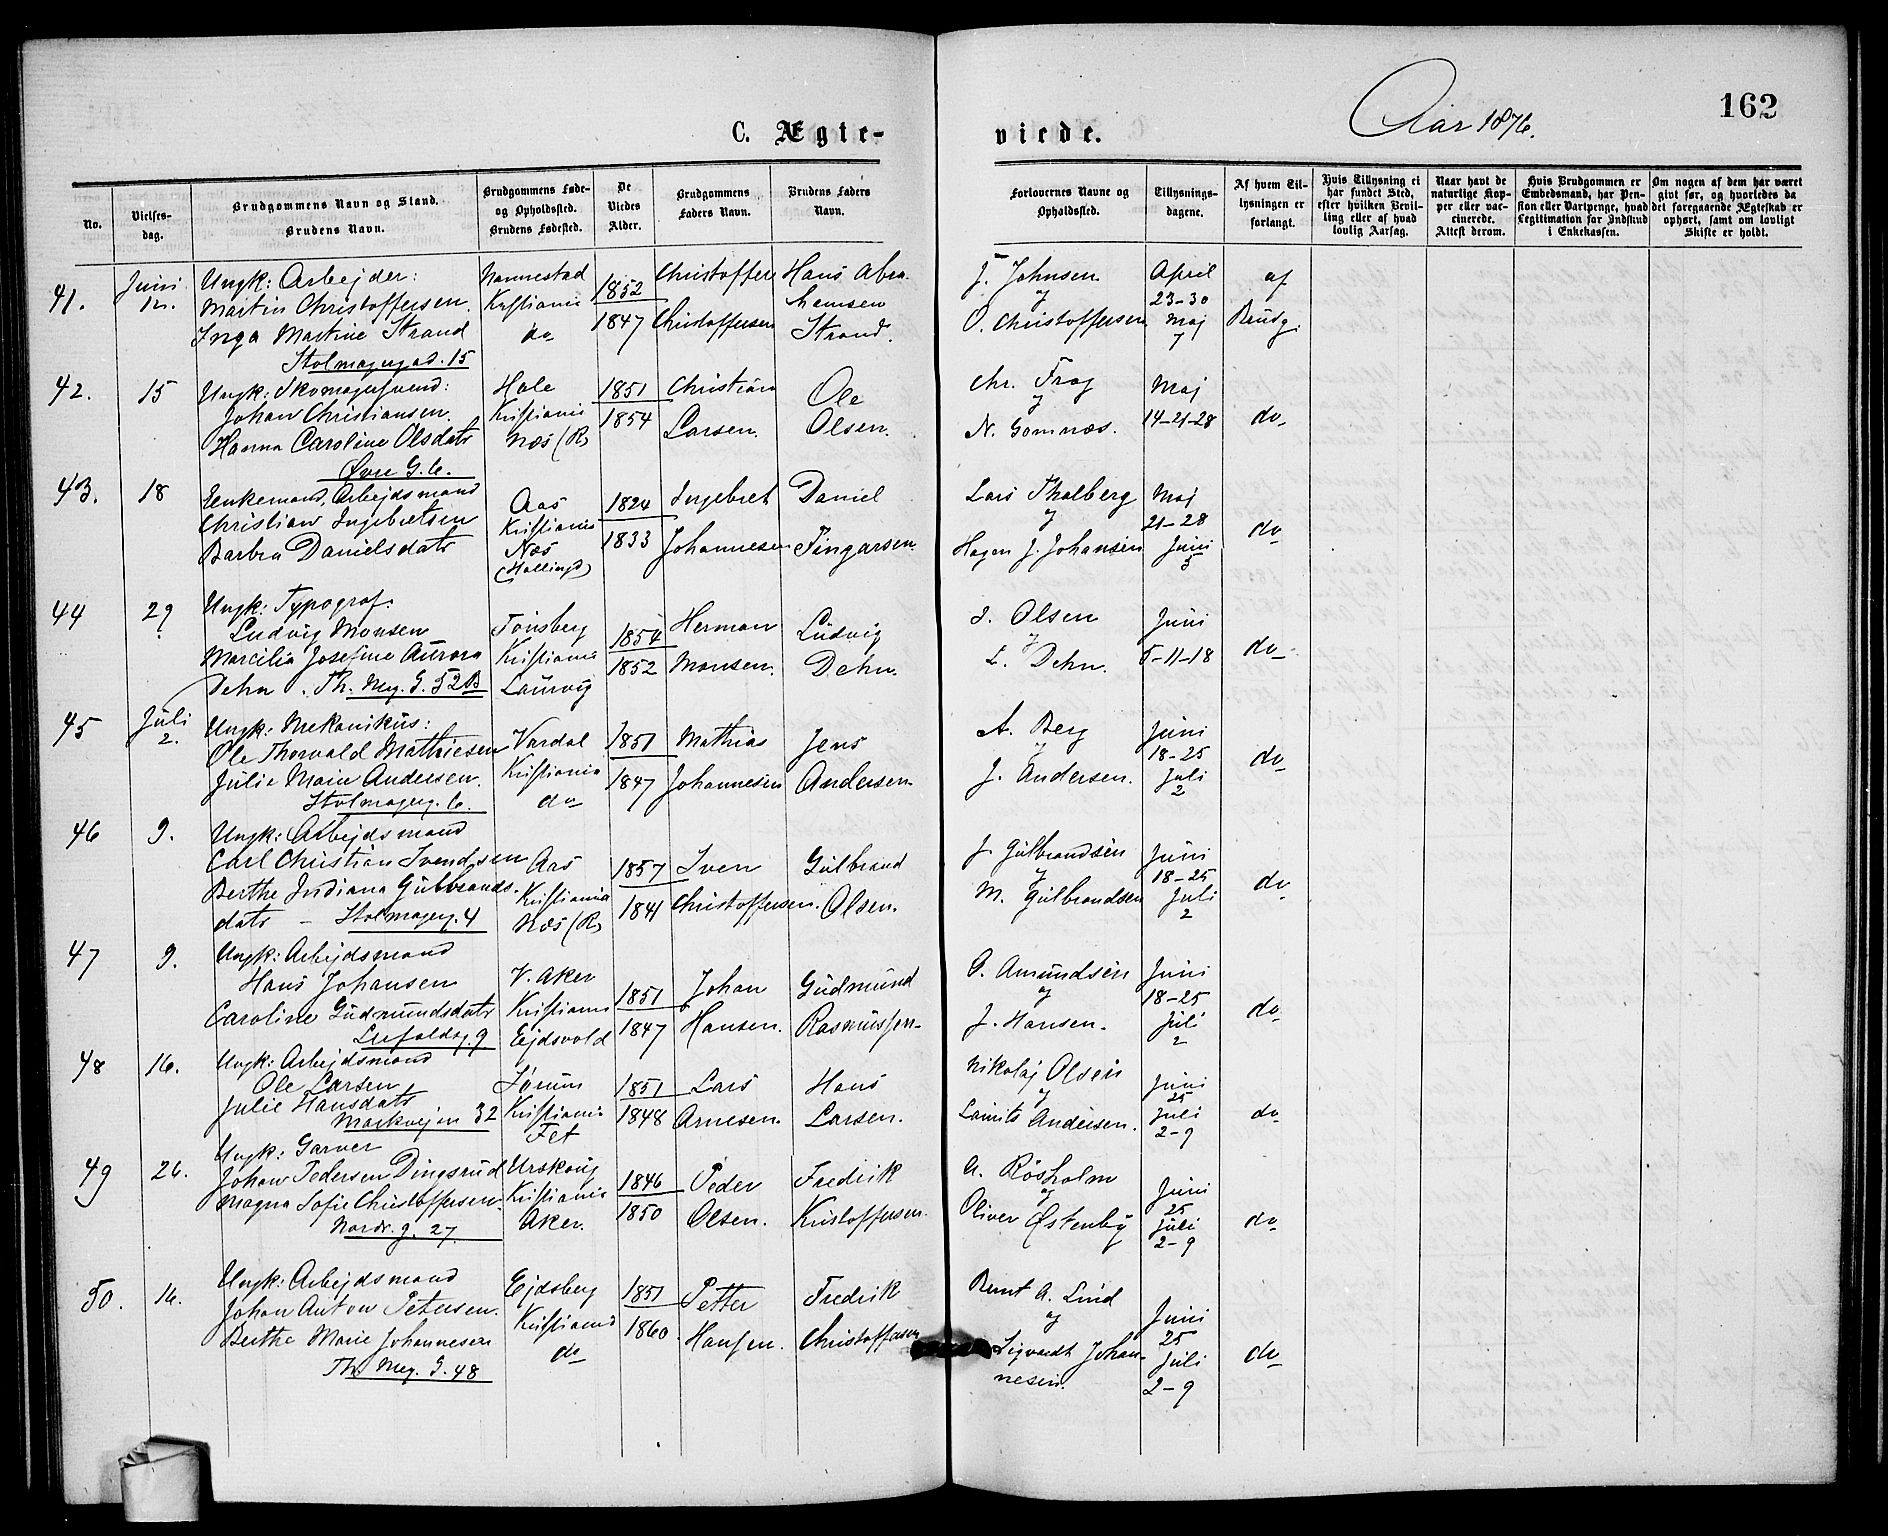 162
Aar 1876.
C. Ægte-
viede.
No.
Vielses-
dag.
Brudgommens Navn og Stand.
Brudens Navn.
Brudgommens Føde-
og Opholdssted.
Brudens Fødested.
De
Viedes
Alder.
Brudgommens
Faders Navn.
Brudens Faders
Navn.
Forlovernes Navne og
Opholdssted.
Tillysnings-
dagene.
Af hvem Til-
lysningen er
forlangt.
Hvis Tillysning ei
har fundet Sted,
efter hvilken Bevil-
ling eller af hvad
lovlig Aarsag.
Naar havt de
naturlige Kop-
per eller vac-
cinerede.
Attest derom.
Hvis Brudgommen er
Embedsmand, har Pen-
sion eller Vartpenge, hvad
Legitimation for Indskud
i Enkekassen.
Om nogen af dem har været
givt før, og hvorledes da
det foregaaende Ægteskab er
ophørt, samt om lovligt
Skifte er holdt.
41.
Juni
12.
Ungk: Arbejder:
Martin Christoffersen.
Inga Martine Strand
Stolmagergad. 15
Nannestad
Kristiania
do
1852
1847
Christoffer
Christoffersen
Hans Abra
hamsen
Strand.
J. Johnsen
og
O. Christoffersen
April
23-30
Maj
7
af
Brudg.
42.
15
Ungk: Skomagersvend:
Johan Christiansen.
Hanna Caroline Olsdatr
Øvre G. 6.
Hole
Kristiania
Næs (R)
1851
1854
Christian
Larsen.
Ole
Olsen.
Chr. Frog
og
N. Gomnæs.
Maj
14-21-28
do
43.
18
Enkemand, Arbejdsmand
Christian Ingebretsen
Barbra Danielsdatr
Aas
Kristiania
Næs
(Hallingd)
1824
1833
Ingebret
Johannesen
Daniel
Tingarsen.
Lars Tholberg
og
Hagen J. Johansen
Maj
21-28
Juni
5
do
44
29
Ungk: Typograf.
Ludvig Monsen
Marcilia Josefine Aurora
Dehn. Th. Mey. G. 52B
Tønsberg
Kristiania
Laurvig
1854
1852
Herman
Monsen.
Ludvig
Dehn.
Olsen
og
L. Dehn.
Juni
5-11-18
do
45
Juli
2.
Ungk: Mekanikus:
Ole Thorvald Mathiesen
Julie Marie Andersen.
Stolmagerg. 6.
Vardal
Kristiania
do
1851
1847
Mathias
Johannesen
Jens
Andersen
A. Berg
og
J. Andersen.
Juni
18-25
Juli
2
do
46
9.
Ungk: Arbejdsmand
Carl Christian Svendsen
Berthe Indiana Gulbrands-
datr - Stolmagerg. 4
Aas
Kristiania
Næs (R)
1857
1841
Sven
Christoffersen.
Gulbrand
Olsen.
J. Gulbrandsen
og
M. Gulbrandsen
Juni
18-25
Juli
2
do
47
9.
Ungk: Arbejdsmand
Hans Johansen
Caroline Gudmundsdatr
Leufoldsg. 9
V. Aker
Kristiania
Ejdsvold
1851
1847
Johan
Hansen.
Gudmund
Rasmussen
A. Amundsen
og
J. Hansen.
Juni
18-25
Juli
2
do
48
16.
Ungk: Arbejdsmand
Ole Larsen
Julie Hansdatr
Markvejen 32
Sørum
Kristiania
Fet
1851
1848
Lars
Arnesen.
Hans
Larsen.
Nikolaj Olsen
og
Laurits Andersen.
Juni
25
Juli
2-9
do
49
26.
Ungk: Garver
Johan Pedersen Dingsrud
Magna Sofie Christoffersen.
Nordr. g. 27.
Urskoug
Kristiania
Aker.
1846
1850
Peder
Olsen.
Fredrik
Kristoffersen.
A. Rösholm
og
Oliver Østenby
Juni
25
Juli
2-9
do
50.
16.
Ungk: Arbejdsmand
Johan Anton Petersen.
Berthe Marie Johannesen
Th. Mey. G. 48
Ejdsberg
Kristiania
do
1851
1860
Petter
Hansen.
Fredrik
Christoffersen
Bernt A. Lind
og
Sigvardt Johan-
nesen.
Juni
25
Juli
2-9
do